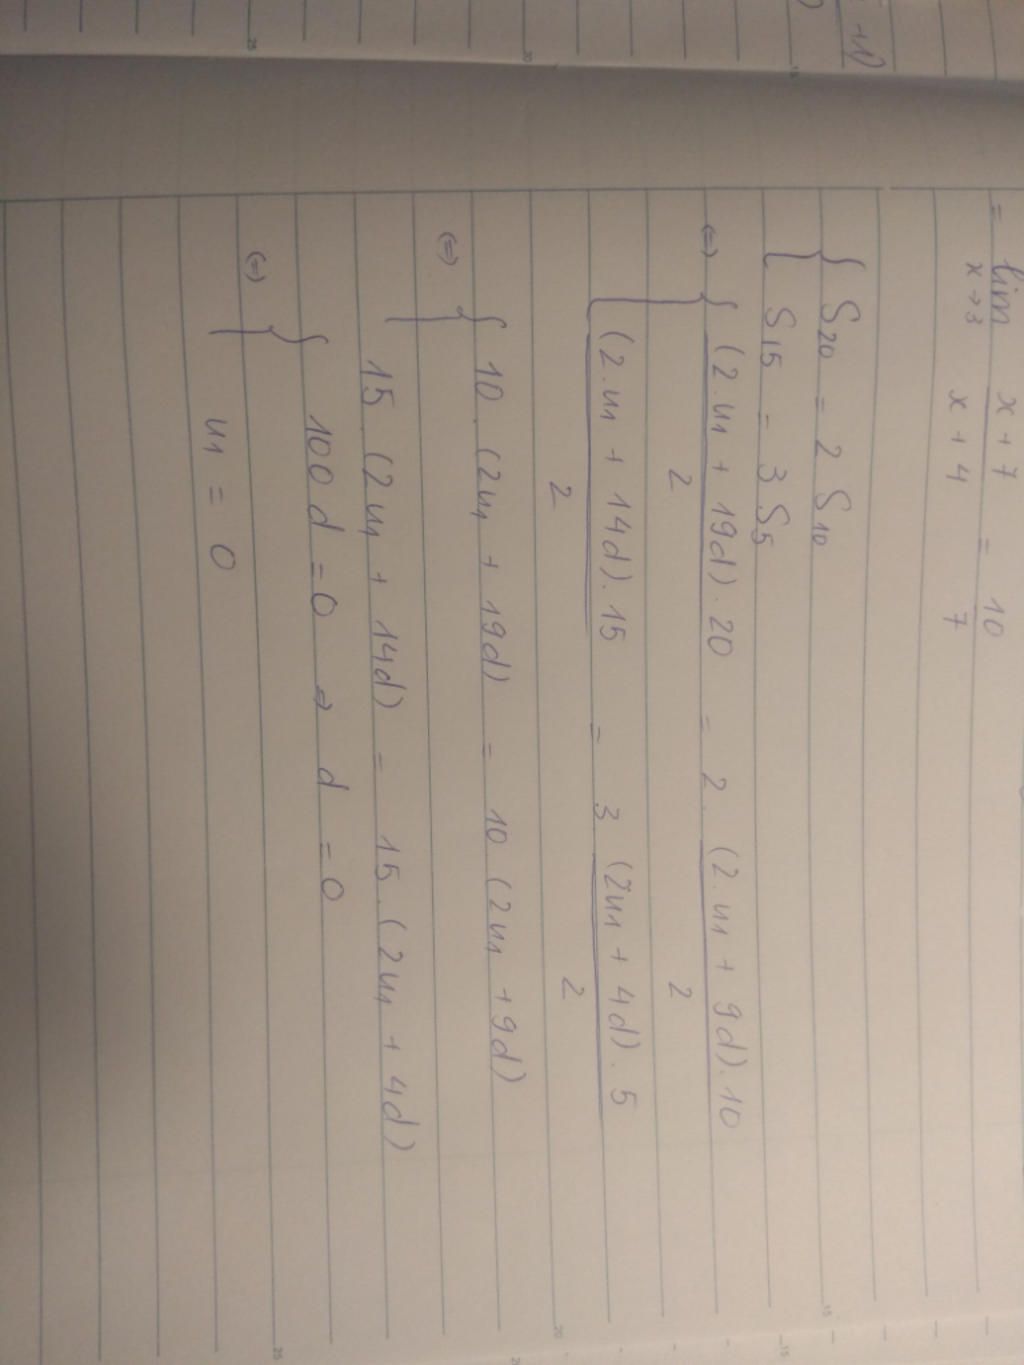 = lim x→3 x + 7 / x + 4 = 10 / 7
{ S20 = 2 S10
S15 = 3 S5
⇔ { (2.u1 + 19d).20 / 2 = 2. (2.u1 + 9d).10 / 2
(2.u1 + 14d).15 / 2 = 3 (2u1 + 4d).5 / 2
⇔ { 10.(2u1 + 19d) = 10 (2u1 + 9d)
15.(2u1 + 14d) = 15.(2u1 + 4d)
⇔ { 100d = 0 ⇒ d = 0
u1 = 0